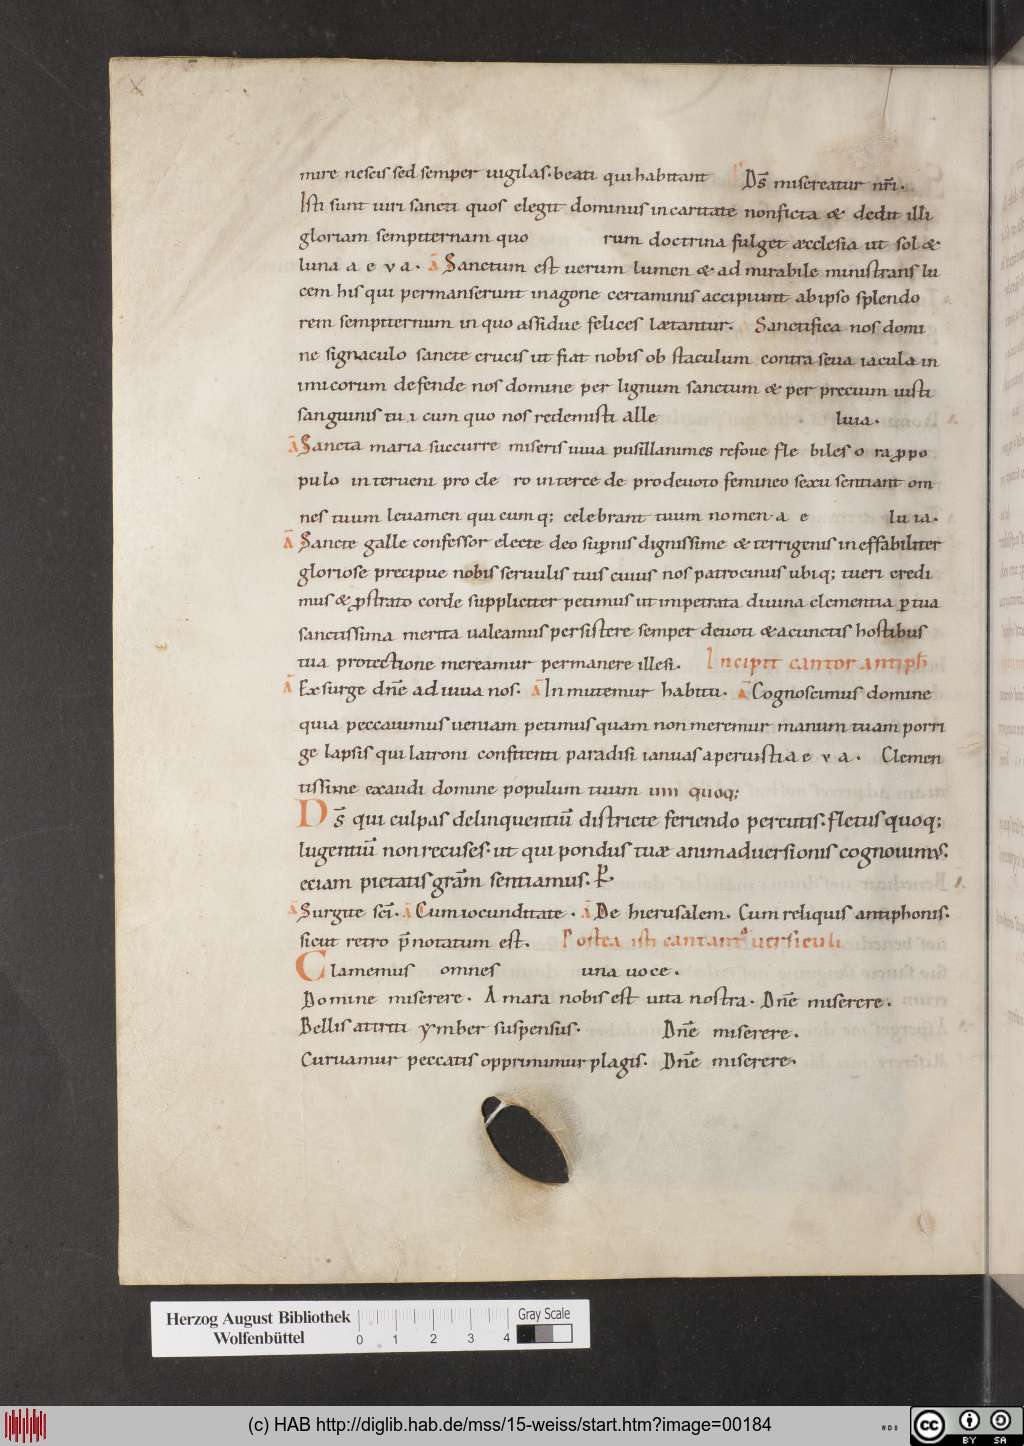 mire nescis sed semper uigilas. beati qui habitant D̄s misereatur nr̄i.
Isti sunt uiri sancti quos elegit dominus in caritate non ficta & dedit illi
gloriam sempiternam quo rum doctrina fulget æcclesia ut sol &
luna a e v a. Ā Sanctum est uerum lumen & ad mirabile ministrans lu
cem his qui permanserunt in agone certaminis accipiunt ab ipso splendo
rem sempiternum in quo assidue felices lætantur. Sanctifica nos domi
ne signaculo sancte crucis ut fiat nobis ob staculum contra seua iacula in
imicorum defende nos domine per lignum sanctum & per precium iusti
sanguinis tu i cum quo nos redemisti alle luia.
Ā Sancta maria succurre miseris iuua pusillanimes refoue fle biles o ra ꝓ po
pulo interueni pro cle ro interce de pro deuoto femineo sexu sentiant om
nes tuum leuamen qui cum q; celebrant tuum nomen a e lu ia.
Ā Sancte galle confessor electe deo supnis dignissime & terrigenis ineffabiliter
gloriose precipue nobis seruulis tuis cuius nos patrocinus ubiq; tueri credi
mus & ꝓstrato corde suppliciter petimus ut impetrata diuina clementia ꝑ tua
sanctissima merita ualeamus persistere semper deuoti & acunctis hostibus
tua protectione mereamur permanere illesi. Incipit cantor antiph̄
Ā Exsurge dn̄e adiuua nos. Ā In mutemur habitu. Ā Cognoscimus domine
quia peccauimus ueniam petimus quam non meremur manum tuam porri
ge lapsis qui latroni confitenti paradisi ianuas aperuisti a e v a. Clemen
tissime exaudi domine populum tuum um quoq;
D̄s qui culpas delinquentiū districte feriendo percutis. fletus quoq;
lugentiū non recuses. ut qui pondus tuæ animaduersionis cognouimus.
eciam pietatis grām sentiamus. P
Ā Surgite sc̄i. Ā Cum iocunditate. Ā De hierusalem. Cum reliquis antiphonis.
sicut retro p̄notatum est. Postea isti cantant uersiculi
Clamemus omnes una uoce.
Domine miserere. Amara nobis est uita nostra. Dn̄e miserere.
Bellis attriti ymber suspensus. Dn̄e miserere.
Curuamur peccatis opprimimur plagis. Dn̄e miserere.
Herzog August Bibliothek
Wolfenbüttel
0 1 2 3 4
Gray Scale
(c) HAB http://diglib.hab.de/mss/15-weiss/start.htm?image=00184
WDB
cc BY SA